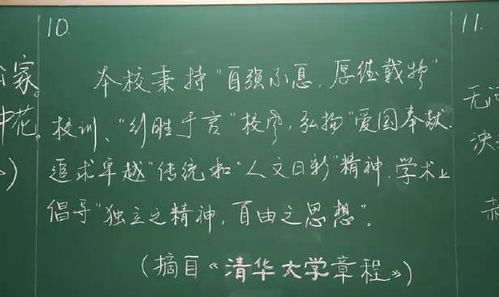 10.
本校秉持"自强不息，厚德载物"
校训、"行胜于言"校风，弘扬"爱国奉献、
追求卓越"传统和"人文日新"精神，学术上
倡导"独立之精神，自由之思想"。
(摘自《清华大学章程》)
家。
花。
)
11.
无
决